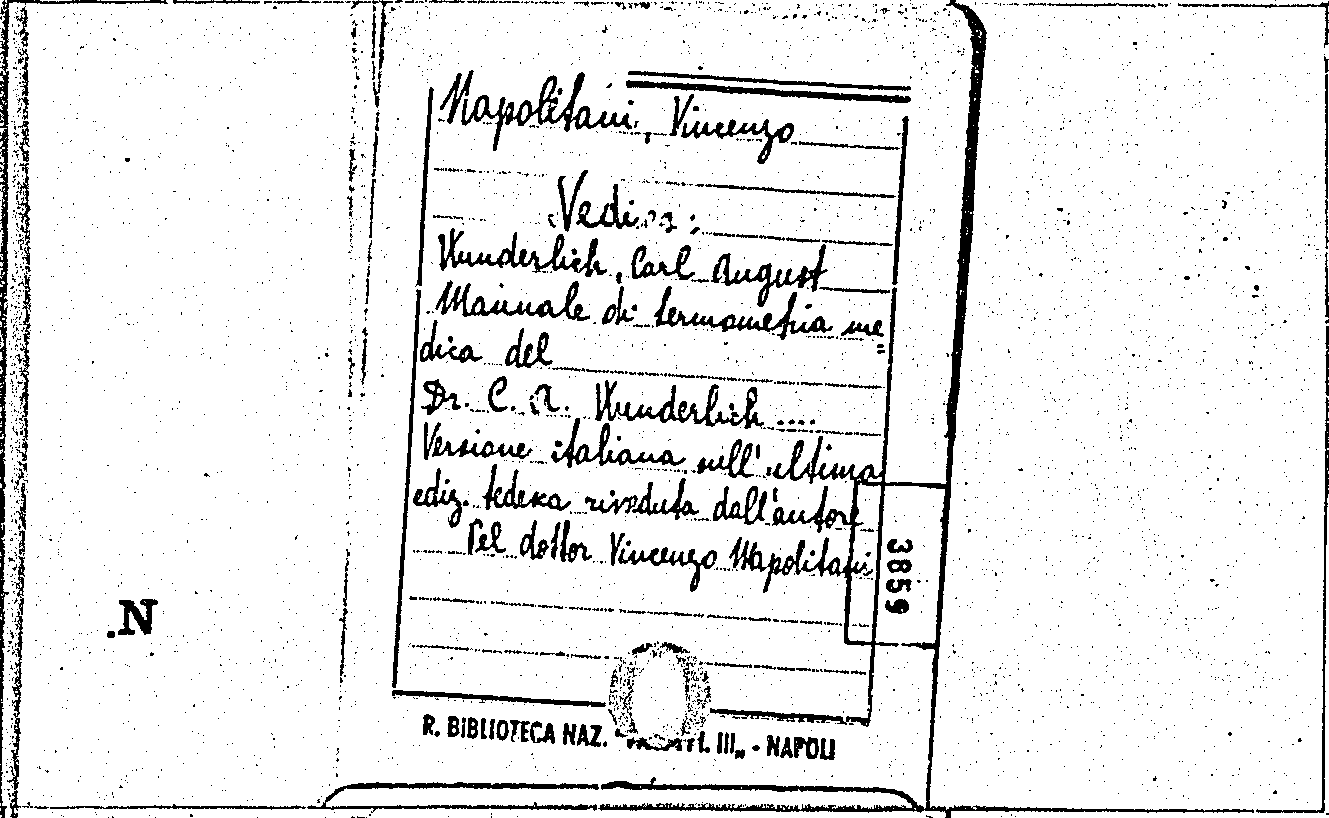 Napolitani, Vincenzo
Vedi
Wunderlich, Carl August
Manuale di termometria me=
dica del
Dr. C. A. Wunderlich ....
Versione italiana sull'ultima
ediz. tedesca riveduta dall'autore
Pel dottor Vincenzo Napolitani
3859
.N
R. BIBLIOTECA NAZ. III„ - NAPOLI